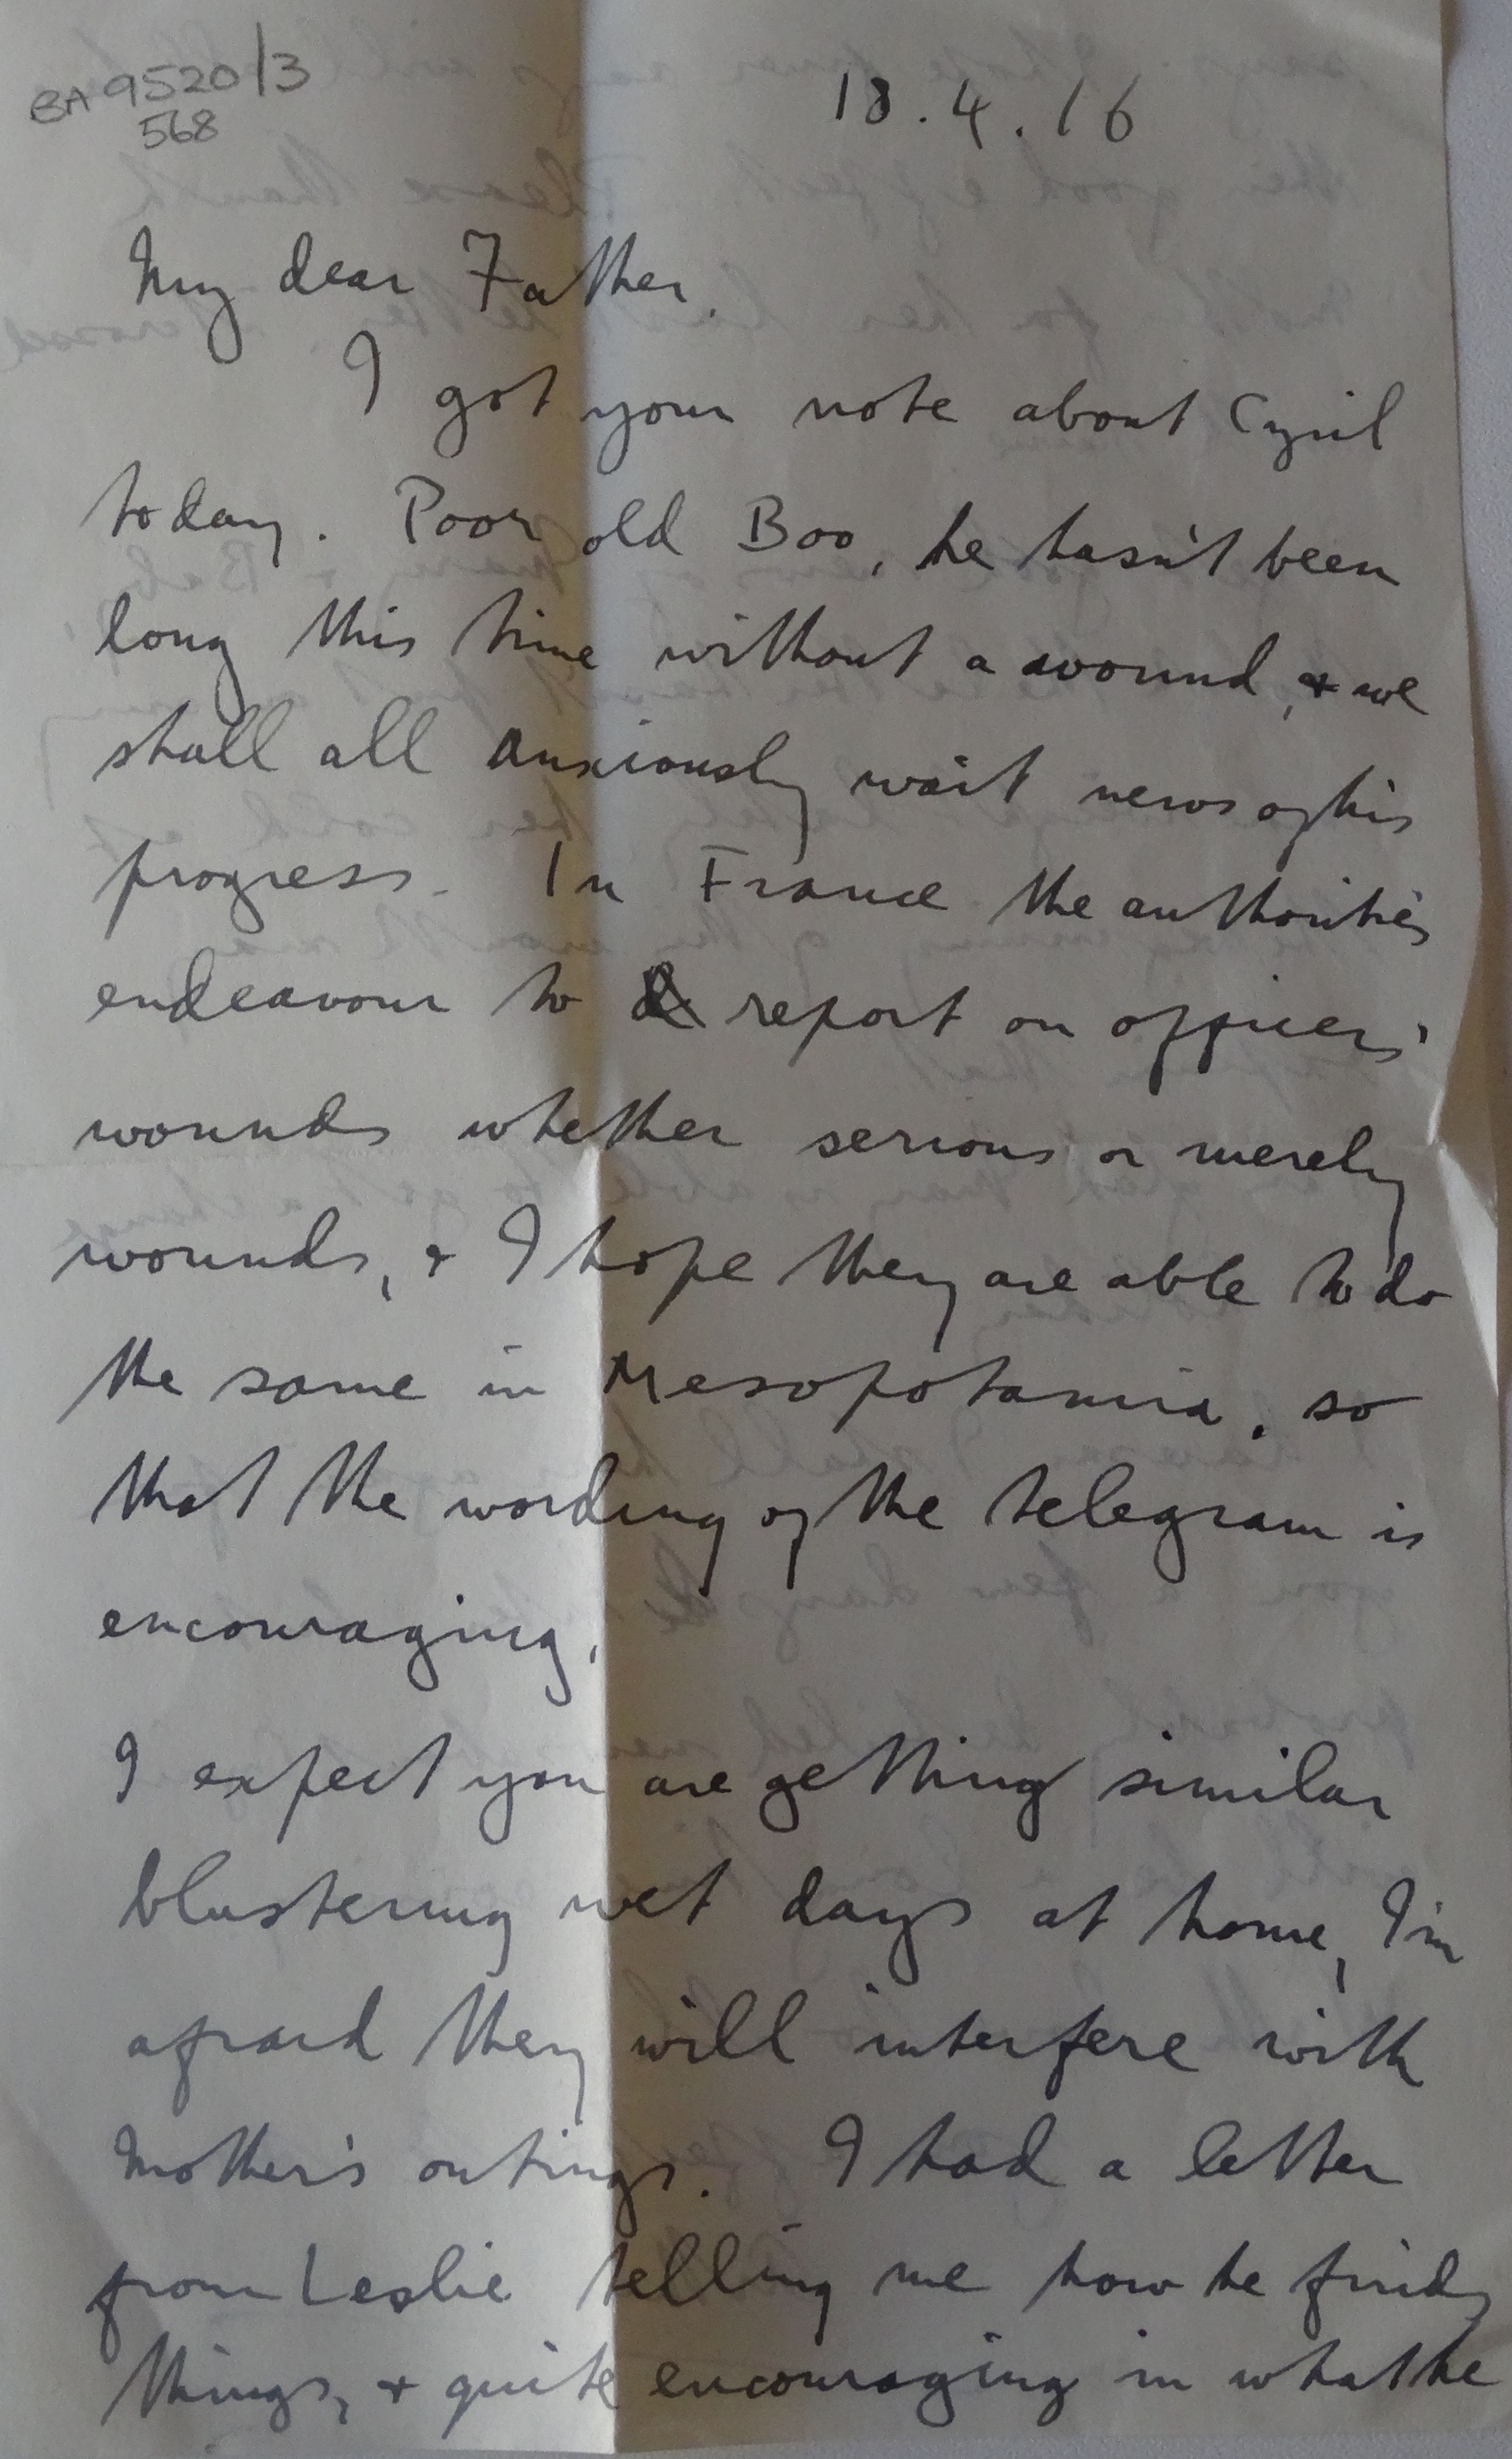 BA 9520/3
568
18.4.16
My dear Father.
I got your note about Cyril
today. Poor old Boo, he hasn't been
long this time without a wound, & we
shall all anxiously wait news of his
progress. In France the authorities
endeavour to report on officers'
wounds whether serious or merely
wounds, & I hope they are able to do
the same in Mesopotamia, so
that the wording of the telegram is
encouraging.
I expect you are getting similar
blustering wet days at home, I'm
afraid they will interfere with
Mother's outings. I had a letter
from Leslie telling me how he finds
things, & quite encouraging in what he